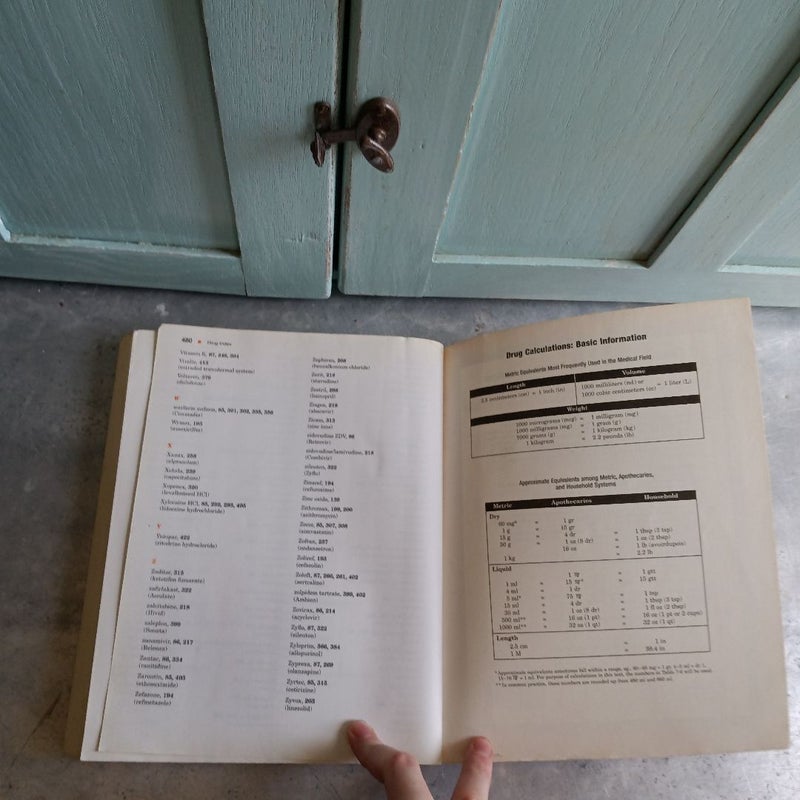 480 ■ Drug Index
Vitamin K, 87, 348, 364
Vivelle, 413
(estradiol transdermal system)
Voltaren, 379
(diclofenac)
W
warfarin sodium, 85, 301, 302, 355, 356
(Coumadin)
Wymox, 195
(amoxicillin)
X
Xanax, 258
(alprazolam)
Xeloda, 239
(capecitabine)
Xopenex, 320
(levalbuterol HCl)
Xylocaine HCl, 83, 293, 295, 405
(lidocaine hydrochloride)
Y
Yutopar, 423
(ritodrine hydrochloride)
Z
Zaditor, 315
(ketotifen fumarate)
zafirlukast, 322
(Accolate)
zalcitabine, 218
(Hivid)
zaleplon, 399
(Sonata)
zanamivir, 86, 217
(Relenza)
Zantac, 86, 334
(ranitidine)
Zarontin, 85, 403
(ethosuximide)
Zefazone, 194
(cefmetazole)
Zephiran, 208
(benzalkonium chloride)
Zerit, 218
(stavudine)
Zestril, 288
(lisinopril)
Ziagen, 218
(abacavir)
Zicam, 313
(zinc mix)
zidovudine ZDV, 86
(Retrovir)
zidovudine/lamivudine, 218
(Combivir)
zileuton, 322
(Zyflo)
Zinacef, 194
(cefuroxime)
Zinc oxide, 138
Zithromax, 198, 200
(azithromycin)
Zocor, 85, 307, 308
(simvastatin)
Zofran, 237
(ondansetron)
Zolicef, 193
(cefazolin)
Zoloft, 87, 260, 261, 402
(sertraline)
zolpidem tartrate, 399, 402
(Ambien)
Zovirax, 86, 214
(acyclovir)
Zyflo, 87, 322
(zileuton)
Zyloprim, 366, 384
(allopurinol)
Zyprexa, 87, 269
(olanzapine)
Zyrtec, 85, 315
(cetirizine)
Zyvox, 203
(linezolid)
Drug Calculations: Basic Information
Metric Equivalents Most Frequently Used in the Medical Field
Length Volume
2.5 centimeters (cm) = 1 inch (in) 1000 milliliters (ml) or
1000 cubic centimeters (cc) = 1 liter (L)
Weight
1000 micrograms (mcg) = 1 milligram (mg)
1000 milligrams (mg) = 1 gram (g)
1000 grams (g) = 1 kilogram (kg)
1 kilogram = 2.2 pounds (lb)
Approximate Equivalents among Metric, Apothecaries,
and Household Systems
Metric Apothecaries Household
Dry
60 mg* = 1 gr
1 g = 15 gr
15 g = 4 dr = 1 tbsp (3 tsp)
30 g = 1 oz (8 dr) = 1 oz (2 tbsp)
16 oz = 1 lb (avoirdupois)
1 kg = 2.2 lb
Liquid
1 ♏ = 1 gtt
1 ml = 15 ♏* = 15 gtt
4 ml = 1 dr
5 ml* = 75 ♏ = 1 tsp
15 ml = 4 dr = 1 tbsp (3 tsp)
30 ml = 1 oz (8 dr) = 1 fl oz (2 tbsp)
500 ml** = 16 oz (1 pt) = 16 oz (1 pt or 2 cups)
1000 ml** = 32 oz (1 qt) = 32 oz (1 qt)
Length
2.5 cm = 1 in
1 M = 39.4 in